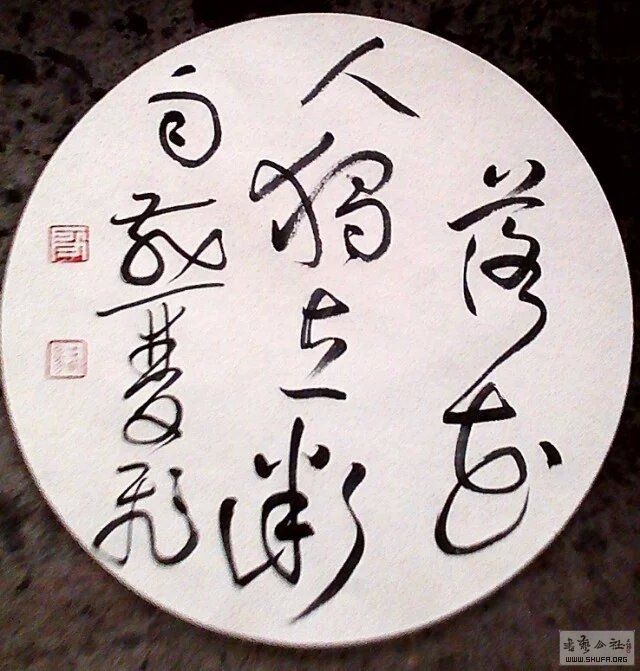 落花
人獨立微
雨燕雙飛
书艺公社
WWW.SHUFA.ORG